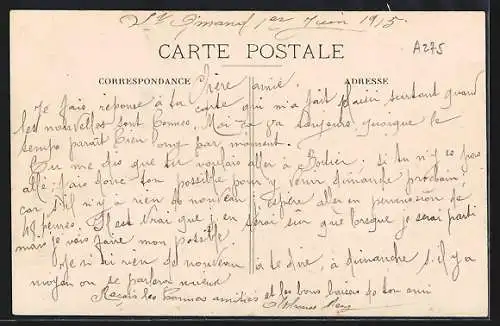 St Amand 1er Juin 1915
A275
CARTE POSTALE
CORRESPONDANCE
ADRESSE
Chère amie.
Je fais réponse à ta carte qui m'a fait plaisir surtout quand
les nouvelles sont bonnes. Moi ça va toujours, quoique le
temps parait bien long par moment.
Tu me dis que tu voulais aller à si tu n'y es pas
allé, fais donc ton possible pour y venir dimanche prochain,
car s'il n'y a rien de nouveau j'espère aller en permission de
48 heures. Il est vrai que j'en serai sûr que lorsque je serai parti
mais je vais faire mon possible
Je n'ai rien de nouveau à te dire, à dimanche s'il y a
moyen on se parlera mieux
Reçois les bonnes amitiés et les bons baisers de ton ami